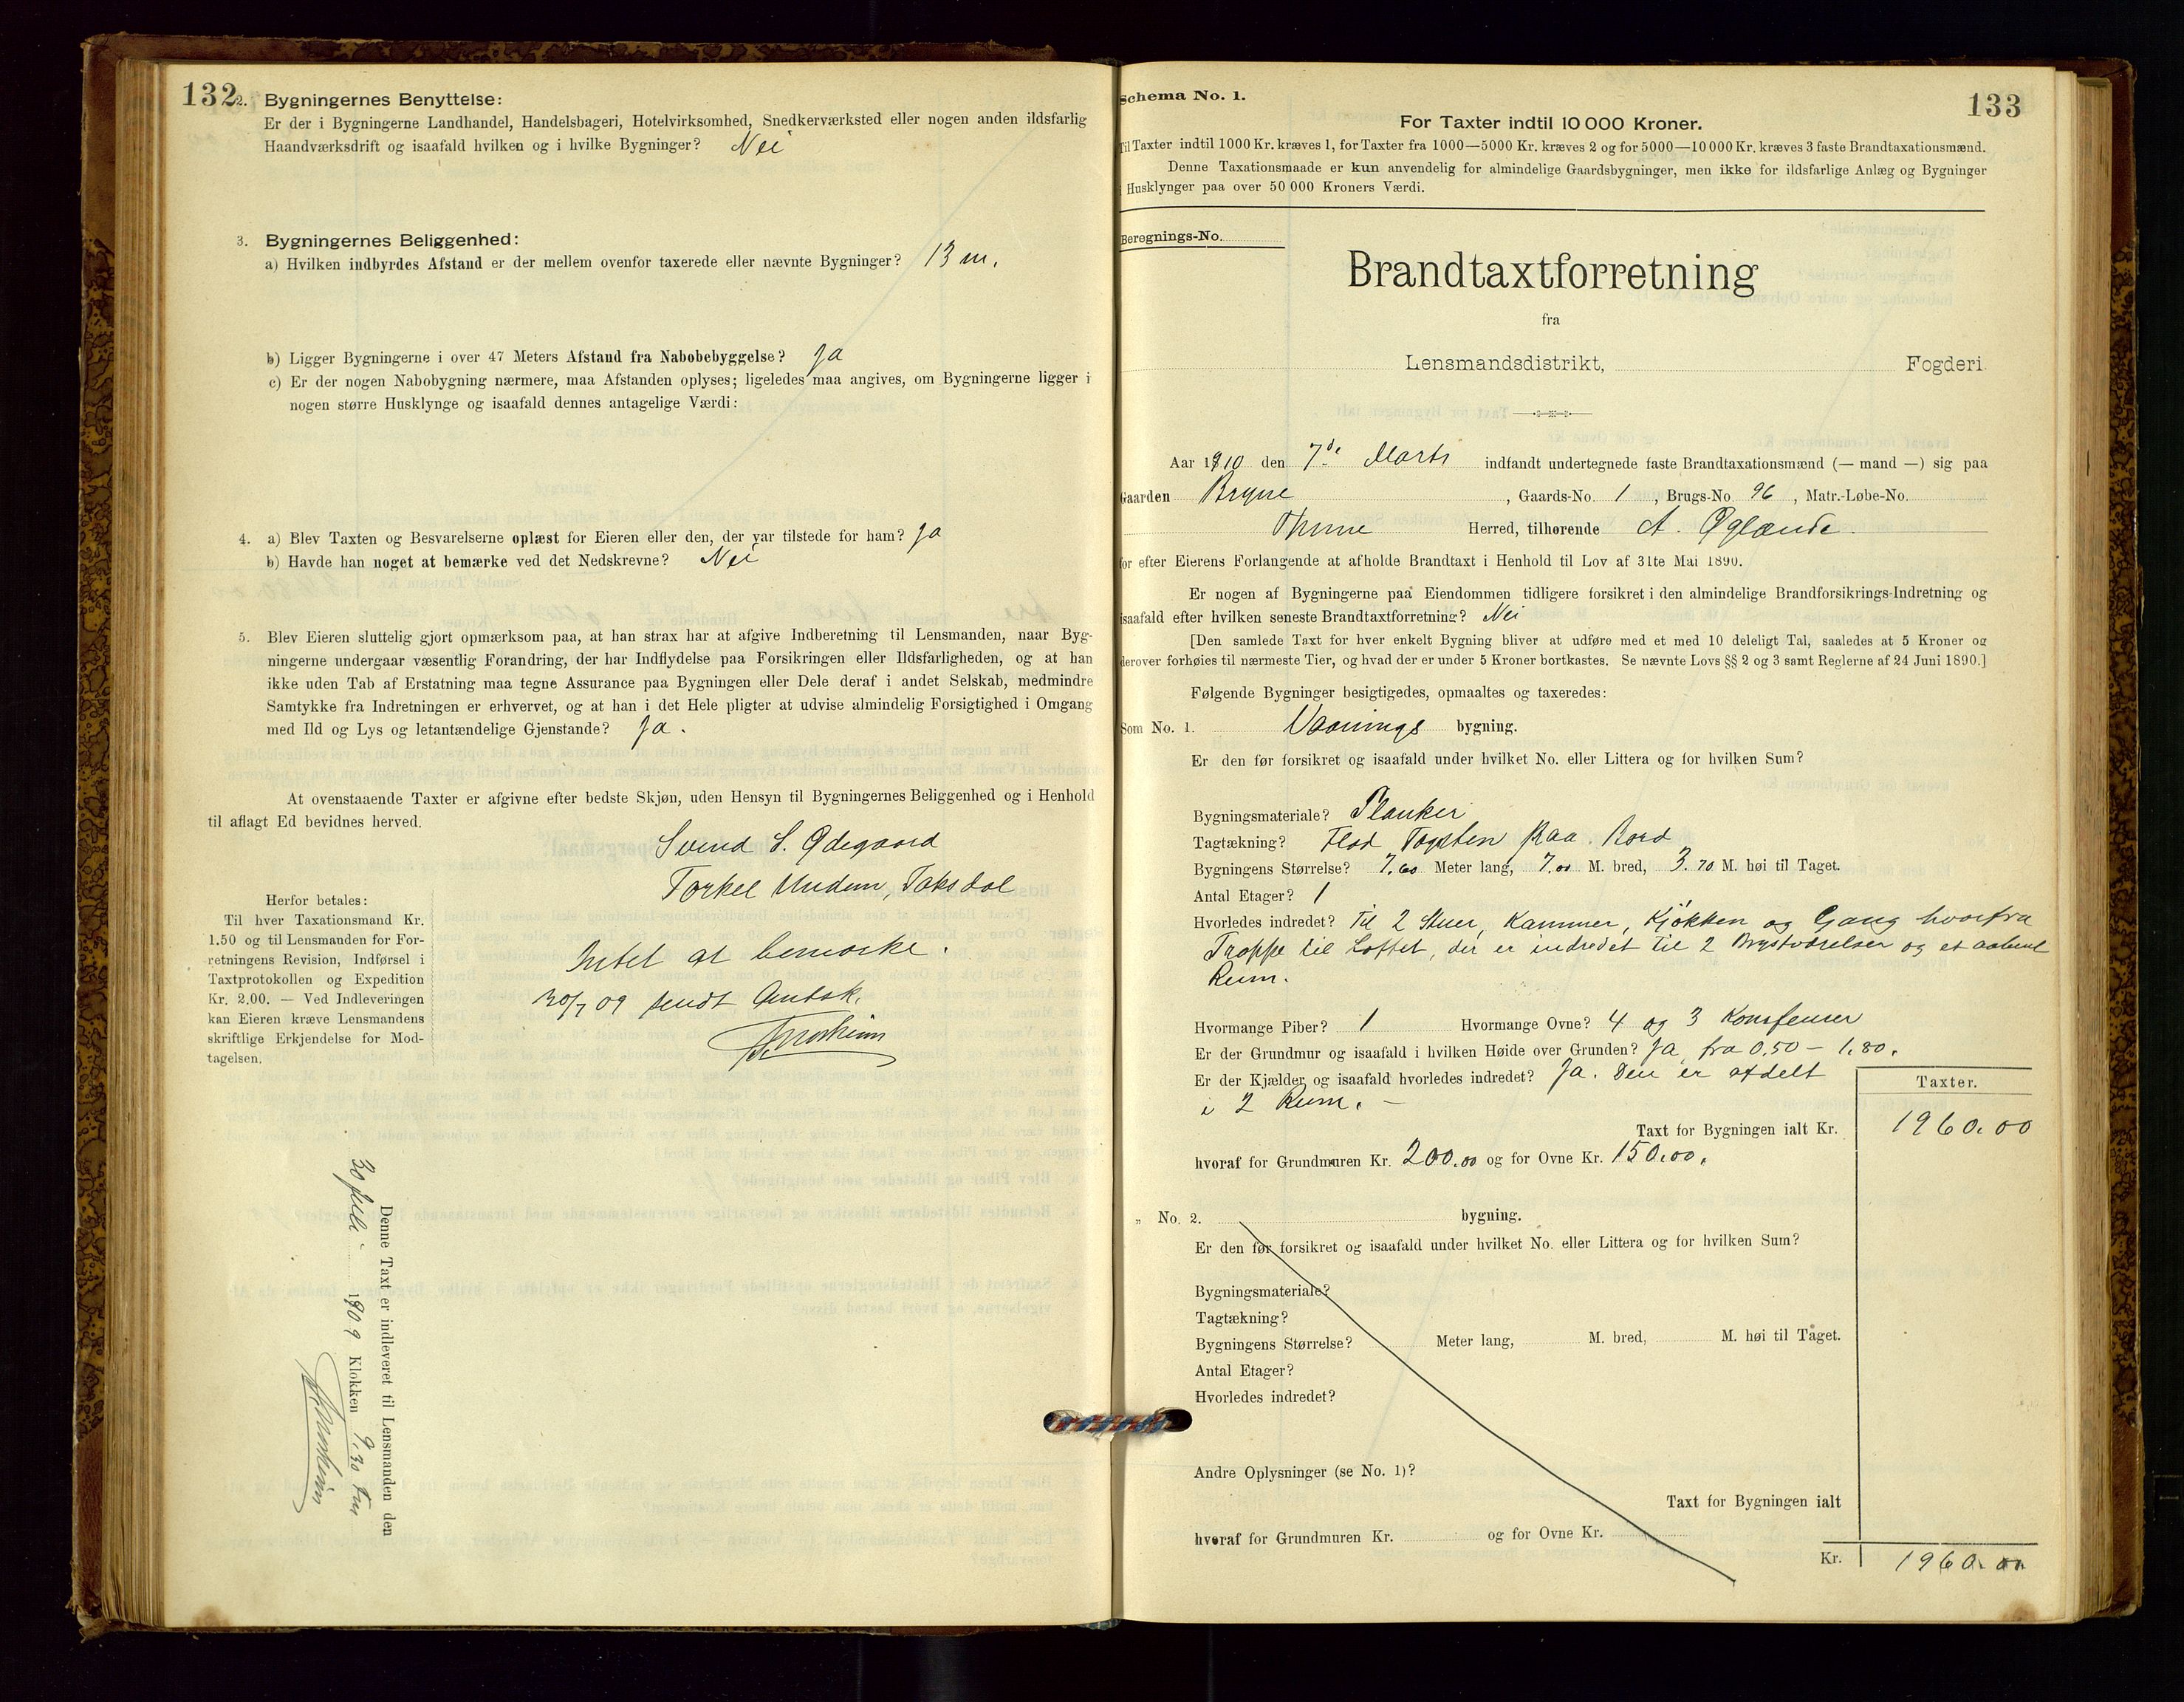 132
2. Bygningernes Benyttelse:
Er der i Bygningerne Landhandel, Handelsbageri, Hotelvirksomhed, Snedkerværksted eller nogen anden ildsfarlig
Haandværksdrift og isaafald hvilken og i hvilke Bygninger? Nei
3. Bygningernes Beliggenhed:
a) Hvilken indbyrdes Afstand er der mellem ovenfor taxerede eller nævnte Bygninger? 13 m.
b) Ligger Bygningerne i over 47 Meters Afstand fra Nabobebyggelse? Ja
c) Er der nogen Nabobygning nærmere, maa Afstanden oplyses; ligeledes maa angives, om Bygningerne ligger i
nogen større Husklynge og isaafald dennes antagelige Værdi:
4. a) Blev Taxten og Besvarelserne oplæst for Eieren eller den, der var tilstede for ham? Ja
b) Havde han noget at bemærke ved det Nedskrevne? Nei
5. Blev Eieren sluttelig gjort opmærksom paa, at han strax har at afgive Indberetning til Lensmanden, naar Byg-
ningerne undergaar væsentlig Forandring, der har Indflydelse paa Forsikringen eller Ildsfarligheden, og at han
ikke uden Tab af Erstatning maa tegne Assurance paa Bygningen eller Dele deraf i andet Selskab, medmindre
Samtykke fra Indretningen er erhvervet, og at han i det Hele pligter at udvise almindelig Forsigtighed i Omgang
med Ild og Lys og letantændelige Gjenstande? Ja.
At ovenstaaende Taxter er afgivne efter bedste Skjøn, uden Hensyn til Bygningernes Beliggenhed og i Henhold
til aflagt Ed bevidnes herved.
Svend S. Ødegaard
Torkel Undem, Taksdal
Herfor betales:
Til hver Taxationsmand Kr.
1.50 og til Lensmanden for For-
retningens Revision, Indførsel i
Taxtprotokollen og Expedition
Kr. 2.00. — Ved Indleveringen
kan Eieren kræve Lensmandens
skriftlige Erkjendelse for Mod-
tagelsen.
Intet at bemærke.
30/7 09 sendt Amtsk.
Denne Taxt er indleveret til Lensmanden den
30 juli 1909 Klokken 9,30 fm
133
Schema No. 1.
For Taxter indtil 10 000 Kroner.
Til Taxter indtil 1000 Kr. kræves 1, for Taxter fra 1000—5000 Kr. kræves 2 og for 5000—10 000 Kr. kræves 3 faste Brandtaxationsmænd.
Denne Taxationsmaade er kun anvendelig for almindelige Gaardsbygninger, men ikke for ildsfarlige Anlæg og Bygninger
i Husklynger paa over 50 000 Kroners Værdi.
Beregnings-No.
Brandtaxtforretning
fra
Lensmandsdistrikt, Fogderi.
Aar 1910 den 7de Marts indfandt undertegnede faste Brandtaxationsmænd (— mand —) sig paa
Gaarden Bryne, Gaards-No. 1, Brugs-No. 96, Matr.-Løbe-No.
Thime Herred, tilhørende A. Øglænde.
for efter Eierens Forlangende at afholde Brandtaxt i Henhold til Lov af 31te Mai 1890.
Er nogen af Bygningerne paa Eiendommen tidligere forsikret i den almindelige Brandforsikrings-Indretning og
isaafald efter hvilken seneste Brandtaxtforretning? Nei
[Den samlede Taxt for hver enkelt Bygning bliver at udføre med et med 10 deleligt Tal, saaledes at 5 Kroner og
derover forhøies til nærmeste Tier, og hvad der er under 5 Kroner bortkastes. Se nævnte Lovs §§ 2 og 3 samt Reglerne af 24 Juni 1890.]
Følgende Bygninger besigtigedes, opmaaltes og taxeredes:
Som No. 1. Vaanings bygning.
Er den før forsikret og isaafald under hvilket No. eller Littera og for hvilken Sum?
Bygningsmateriale? Planker
Tagtækning? Flad Tagsten paa Bord
Bygningens Størrelse? 7.60 Meter lang, 7.00 M. bred, 3.70 M. høi til Taget.
Antal Etager? 1
Hvorledes indredet? Til 2 Stuer, Kammer, Kjøkken og Gang hvorfra
Trappe til Loftet, der er indredet til 2 Kvistværelser og et aabent
Rum.
Hvormange Piber? 1 Hvormange Ovne? 4 og 3 Komfeurer
Er der Grundmur og isaafald i hvilken Høide over Grunden? Ja, fra 0.50 – 1.80.
Er der Kjælder og isaafald hvorledes indredet? Ja. Den er afdelt
i 2 Rum. —
Taxter.
Taxt for Bygningen ialt Kr. 1960.00
hvoraf for Grundmuren Kr. 200.00 og for Ovne Kr. 150.00.
„ No. 2. bygning.
Er den før forsikret og isaafald under hvilket No. eller Littera og for hvilken Sum?
Bygningsmateriale?
Tagtækning?
Bygningens Størrelse? Meter lang, M. bred, M. høi til Taget.
Antal Etager?
Hvorledes indredet?
Andre Oplysninger (se No. 1)?
Taxt for Bygningen ialt
hvoraf for Grundmuren Kr. og for Ovne Kr.
Kr. 1960.00